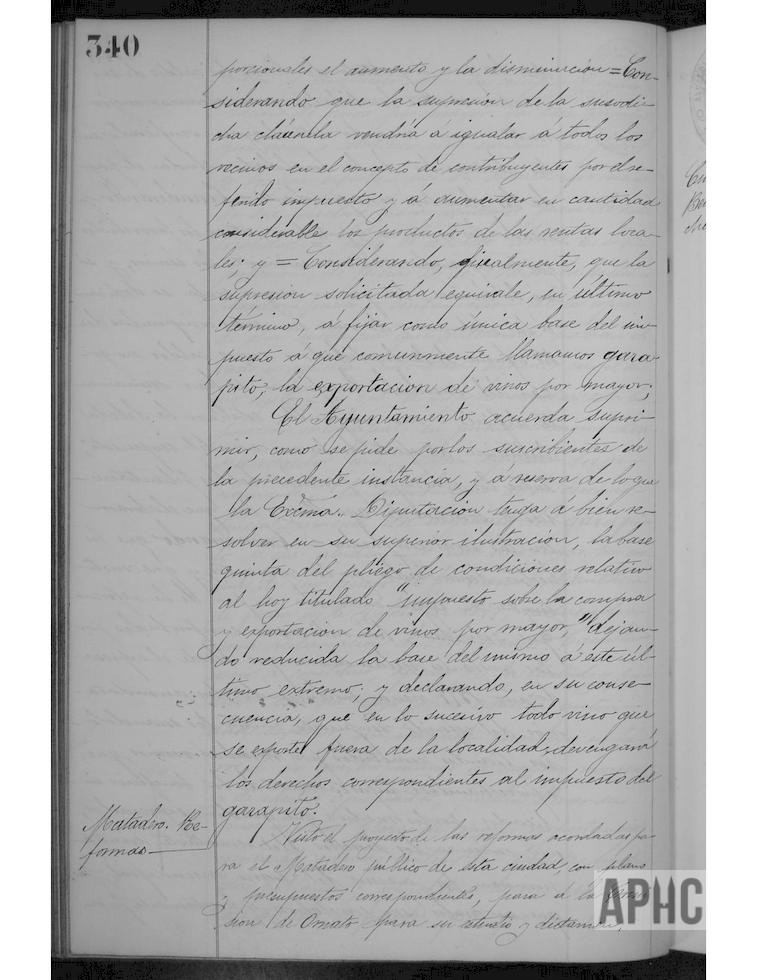 340
porcionales el aumento y la disminución = Con-
siderando que la supresión de la susodi-
cha cláusula vendría á igualar á todos los
vecinos en el concepto de contribuyentes por el re-
ferido impuesto y á aumentar en cantidad
considerable los productos de las rentas loca-
les; y = Considerando, finalmente, que la
supresión solicitada equivale, en último
término, á fijar como única base del im-
puesto á que comunmente llamamos gara-
pito, la exportación de vinos por mayor;
El Ayuntamiento acuerda supri-
mir, como se pide por los suscribientes de
la precedente instancia, y á reserva de lo que
la Excma. Diputación tenga á bien re-
solver en su superior ilustración, la base
quinta del pliego de condiciones relativo
al hoy titulado "impuesto sobre la compra
y exportación de vinos por mayor," dejan-
do reducida la base del mismo á este úl-
timo extremo; y declarando, en su conse-
cuencia, que en lo sucesivo todo vino que
se exporte fuera de la localidad, devengará
los derechos correspondientes al impuesto del
garapito.
Matadero. Re-
formas
Visto el proyecto de las reformas acordadas pa-
ra el Matadero público de esta ciudad, con plano
y presupuestos correspondientes, pase á la
sión de Ornato para su estudio y dictamen.
APHC